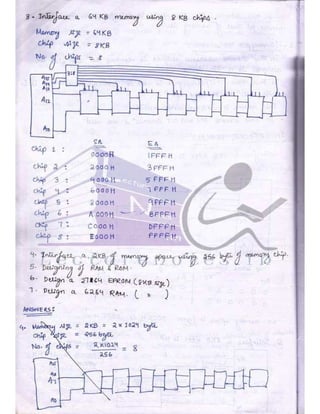 3. Interface a 64 KB memory using 8 KB chips.
Memory size = 64KB
Chip size = 8KB
No. of chips = 8
A15
A14
A13
3:8
A12
A0
SA EA
Chip 1 : 0000H 1FFF H
Chip 2 : 2000H 3FFF H
Chip 3 : 4000H 5FFF H
Chip 4 : 6000H 7FFF H
Chip 5 : 8000H 9FFF H
Chip 6 : A000H BFFF H
Chip 7 : C000H DFFF H
Chip 8 : E000H FFFF H
4. Interface a 2KB of memory space using 256 byte of memory chip.
5. Designing of RAM & ROM.
6. Design a 2764 EPROM (8KB size)
7. Design a 6264 RAM. ( " )
ANSWERS:
4. Memory size = 2KB = 2 x 1024 byte
Chip size = 256 byte
No. of chips = 2x1024 / 256 = 8
A7
A0